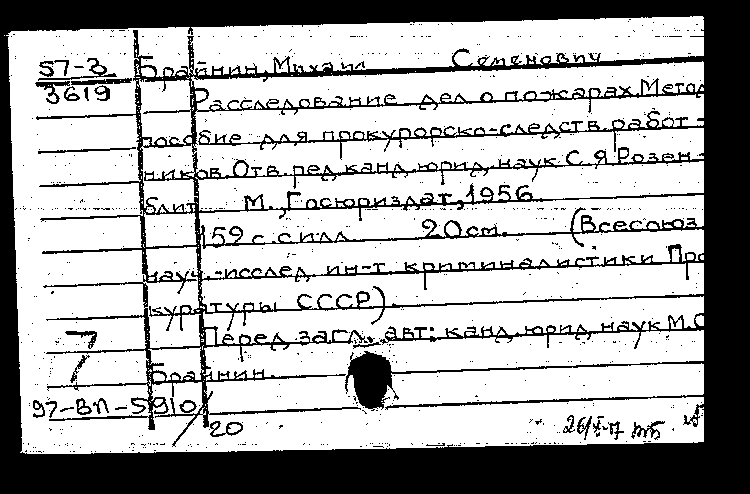 57-3 Брайнин, Михаил Семенович
3619
Расследование дел о пожарах. Метод.
пособие для прокурорско-следств. работ-
ников. Отв. ред. канд. юрид. наук С. Я. Розен-
блит М., Госюриздат, 1956.
159 с. с илл. 20 см. (Всесоюз.
науч.-исслед. ин-т криминалистики Про
куратуры СССР).
Перед загл. авт.: канд. юрид. наук М.С
7
Брайнин.
97-ВП-5910
20